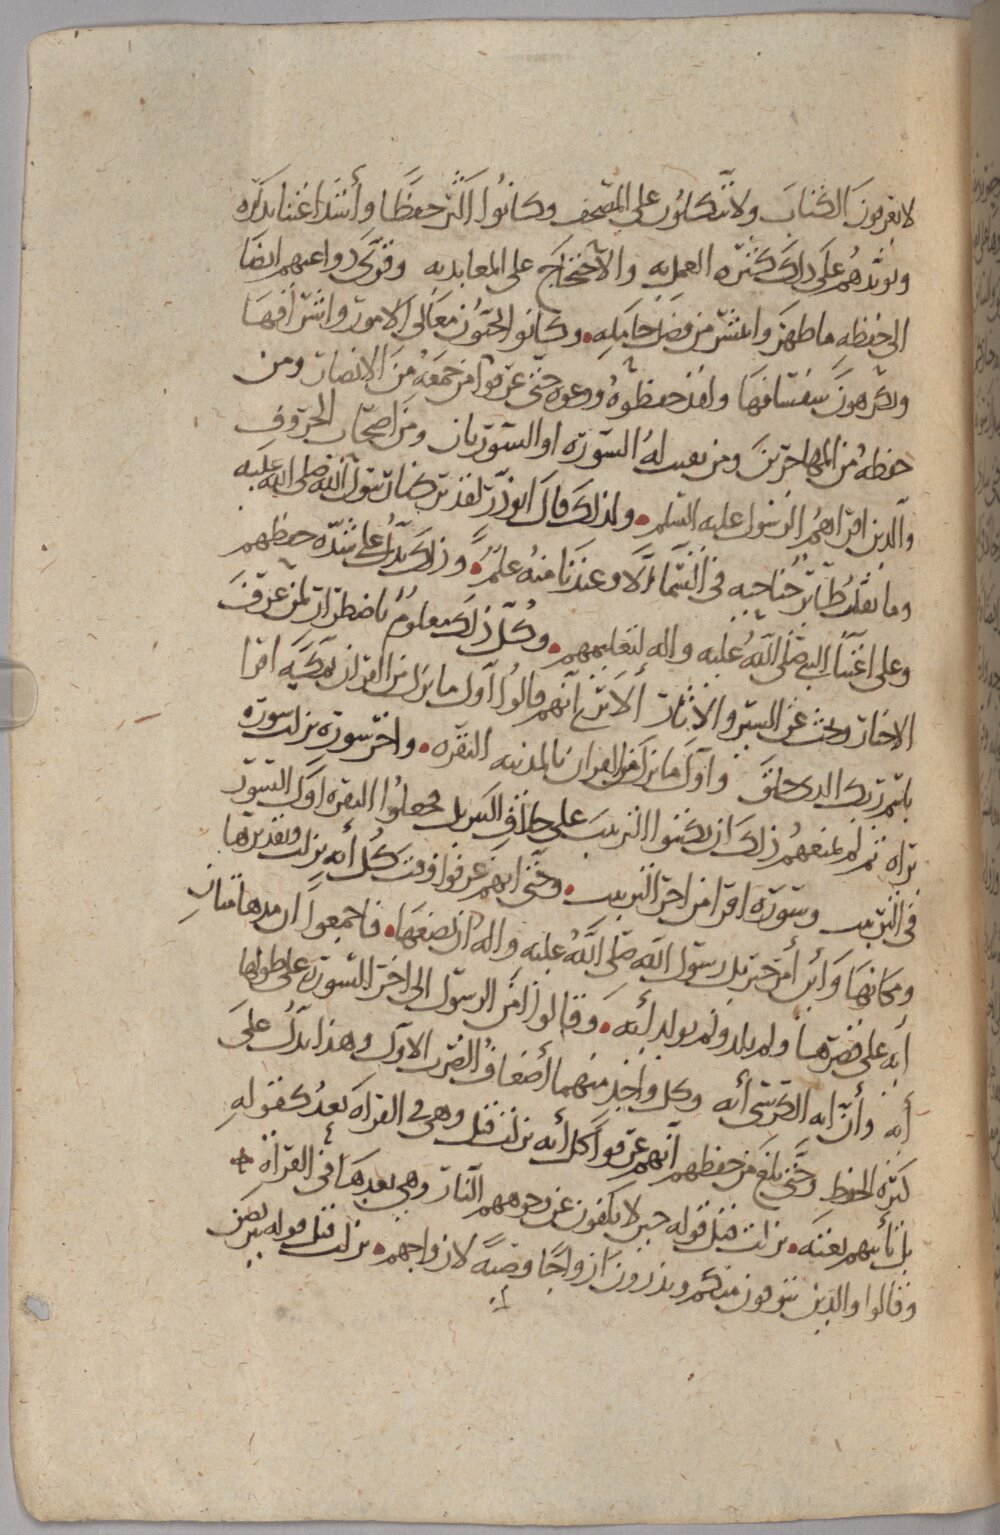 لا يعرفون الكتاب ولا يتكلون على المصحف وكانوا اكثر حفظا وأشد اعتنا بذكره
ويزيدهم على ذلك كثره العمل به والاحتجاج على المعاند به وقوي دواعيهم ايضا
الى حفظه ما ظهر وانتشر من فضل حامله وكانوا يحبون معالي الامور واشرافها
ويكرهون سفسافها ولقد حفظوه ووعوه حتى عرفوا من جمعه من الانصار ومن
حفظه من المهاجرين ومن بقيت له السوره او السورتان ومن اصحاب الحروف
والذين اقراهم الرسول عليه السلم ولذلك قال ابو ذر لقد تركنا رسول الله صلى الله عليه
وما يقلب طائر جناحيه في السماء الا وعندنا منه علم وذلك يدل على شده حفظهم
وعلى اعتنا النبي صلى الله عليه واله لتعليمهم وكل ذلك معلوم باضطرار لمن عرف
الاخبار وبحث عن السير والاثار ألا ترى انهم قالوا اول ما نزل من القران بمكة اقرا
باسم ربك الذي خلق واول ما نزل من القران بالمدينه البقره واخر سوره نزلت سوره
براه ثم لم يمنعهم ذلك ان يكتبوا الترتيب على خلاف التنزيل فجعلوا البقره اول السور
في الترتيب وسوره اقرا من اخر الترتيب وحتى انهم عرفوا وقت كل أيه نزلت وتقديرها
ومكانها وأين أمر جبريل رسول الله صلى الله عليه واله ان يضعها فاجمعوا ان مدهامتان
أيه على قصرها ولم يلد ولم يولد أيه وقالوا امن الرسول الى اخر السوره على طولها
أيه وأن ايه الكرسي أيه وكل واحد منهما أضعاف الضرب الاول وهذا يدل على
كثره الحفظ وحتى بلغ من حفظهم أنهم عرفوا كل أيه نزلت قبل وهي في القراه بعد كقوله
بل تأتيهم بغته نزلت قبل قوله حين لا يكفون عن وجوههم النار وهي بعدها في القراه
وقالوا والذين يتوفون منكم ويذرون ازواجا وصية لازواجهم نزلت قبل قوله يتربصن